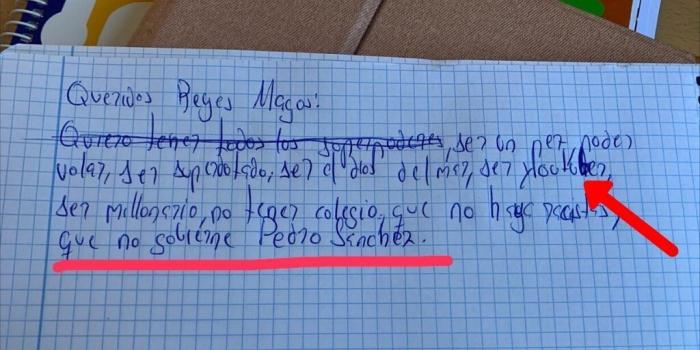 Queridos Reyes Magos:
Quiero tener todos los superpoderes, ser un pez, poder
volar, ser superdotado, ser el dios del mar, ser
ser millonario, no tener colegio, que no haya
que no gobierne Pedro Sánchez.